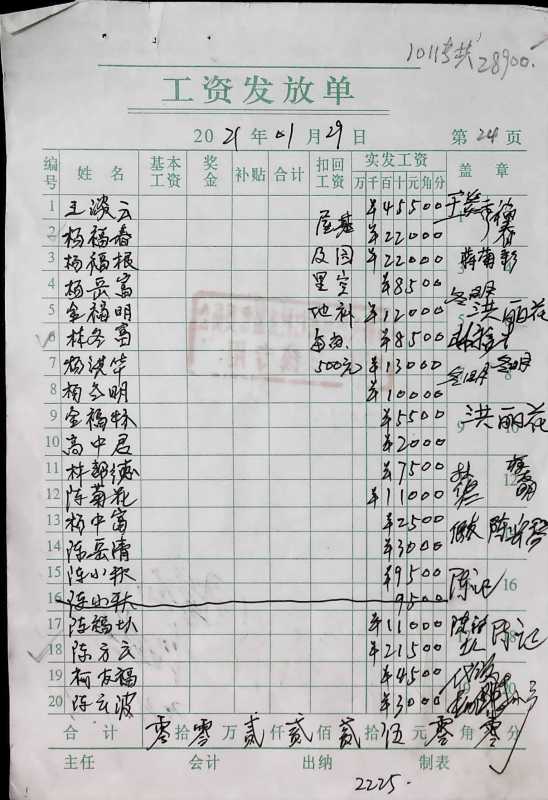 28900.
工资发放单
2021年01月29日 第24页
编号 姓名 基本工资 奖金 补贴 合计 扣回工资 实发工资 盖章
万千百十元角分
1 王淑云 ¥45500
2 杨福春 屋基 ¥22000
3 杨福根 及园 ¥22000
4 杨岳富 里空 ¥8500
5 金福明 地补 ¥12000 洪丽花
6 林冬富 ¥8500
7 杨洪华 500元 ¥13000
8 杨冬明 ¥10000
9 金福林 ¥5500 洪丽花
10 高中君 ¥2000
11 林朝德 ¥7500
12 陈菊花 ¥11000
13 杨中富 ¥2500
14 陈岳清 ¥3000
15 陈小秋 ¥9500 陈记
16 陈小秋 9500 16
17 陈福 ¥11000 陈记
18 陈方云 ¥21500
19 柯友福 ¥4500
20 陈云波 ¥3000
合计 零拾零万贰仟贰佰贰拾伍元零角零分
主任 会计 出纳 制表
2225.